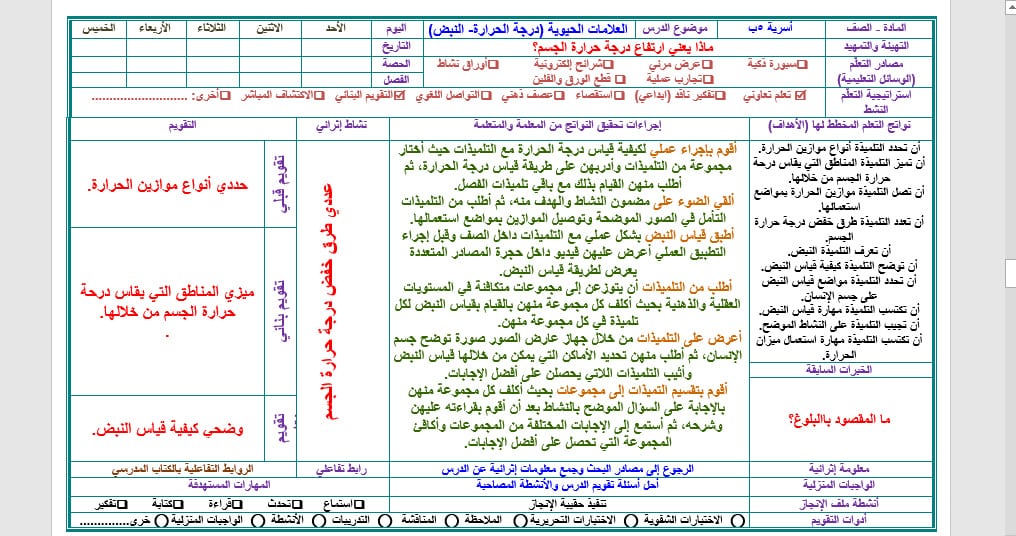 المادة - الصف أسرية ٥ب موضوع الدرس العلامات الحيوية (درجة الحرارة- النبض) اليوم الأحد الاثنين الثلاثاء الأربعاء الخميس
التهيئة والتمهيد ماذا يعني ارتفاع درجة حرارة الجسم؟ التاريخ
مصادر التعلّم (الوسائل التعليمية) سبورة ذكية عرض مرئي شرائح إلكترونية أوراق نشاط الحصة
تجارب عملية قطع الورق والفلين الفصل
استراتيجية التعلّم النشط تعلم تعاوني تفكير ناقد (ابداعي) استقصاء عصف ذهني التواصل اللغوي التقويم البنائي الاكتشاف المباشر أخرى: ...........................
نواتج التعلم المخطط لها (الأهداف) إجراءات تحقيق النواتج من المعلمة والمتعلمة نشاط إثرائي التقويم
أن تحدد التلميذة أنواع موازين الحرارة.
أن تميز التلميذة المناطق التي يقاس درجة
حرارة الجسم من خلالها.
أن تصل التلميذة موازين الحرارة بمواضع
استعمالها.
أن تعدد التلميذة طرق خفض درجة حرارة
الجسم.
أن تعرف التلميذة النبض.
أن توضح التلميذة كيفية قياس النبض.
أن تحدد التلميذة مواضع قياس النبض
على جسم الإنسان.
أن تكتسب التلميذة مهارة قياس النبض.
أن تجيب التلميذة على النشاط الموضح.
أن تكتسب التلميذة مهارة استعمال ميزان
الحرارة.
الخبرات السابقة
ما المقصود باالبلوغ؟
أقوم بإجراء عملي لكيفية قياس درجة الحرارة مع التلميذات حيث أختار
مجموعة من التلميذات وأدربهن على طريقة قياس درجة الحرارة، ثم
أطلب منهن القيام بذلك مع باقي تلميذات الفصل.
ألقي الضوء على مضمون النشاط والهدف منه، ثم أطلب من التلميذات
التأمل في الصور الموضحة وتوصيل الموازين بمواضع استعمالها.
أطبق قياس النبض بشكل عملي مع التلميذات داخل الصف وقبل إجراء
التطبيق العملي أعرض عليهن فيديو داخل حجرة المصادر المتعددة
يعرض لطريقة قياس النبض.
أطلب من التلميذات أن يتوزعن إلى مجموعات متكافئة في المستويات
العقلية والذهنية بحيث أكلف كل مجموعة منهن بالقيام بقياس النبض لكل
تلميذة في كل مجموعة منهن.
أعرض على التلميذات من خلال جهاز عارض الصور صورة توضح جسم
الإنسان, ثم أطلب منهن تحديد الأماكن التي يمكن من خلالها قياس النبض
وأثيب التلميذات اللاتي يحصلن على أفضل الإجابات.
أقوم بتقسيم التميذات إلى مجموعات بحيث أكلف كل مجموعة منهن
بالإجابة على السؤال الموضح بالنشاط بعد أن أقوم بقراءته عليهن
وشرحه, ثم أستمع إلى الإجابات المختلفة من المجموعات وأكافئ
المجموعة التي تحصل على أفضل الإجابات.
عددي طرق خفض درجة حرارة الجسم
تقويم قبلي
حددي أنواع موازين الحرارة.
تقويم بنائي
ميزي المناطق التي يقاس درحة
حرارة الجسم من خلالها.
.
تقويم
وضحي كيفية قياس النبض.
معلومة إثرائية الرجوع إلى مصادر البحث وجمع معلومات إثرائية عن الدرس رابط تفاعلي الروابط التفاعلية بالكتاب المدرسي
الواجبات المنزلية أحل أسئلة تقويم الدرس والأنشطة المصاحبة المهارات المستهدفة
أنشطة ملف الإنجاز تنفيذ حقيبة الإنجاز استماع تحدث قراءة كتابة تفكير
أدوات التقويم الاختبارات الشفوية الاختبارات التحريرية الملاحظة المناقشة التدريبات الأنشطة الواجبات المنزلية خرى..............